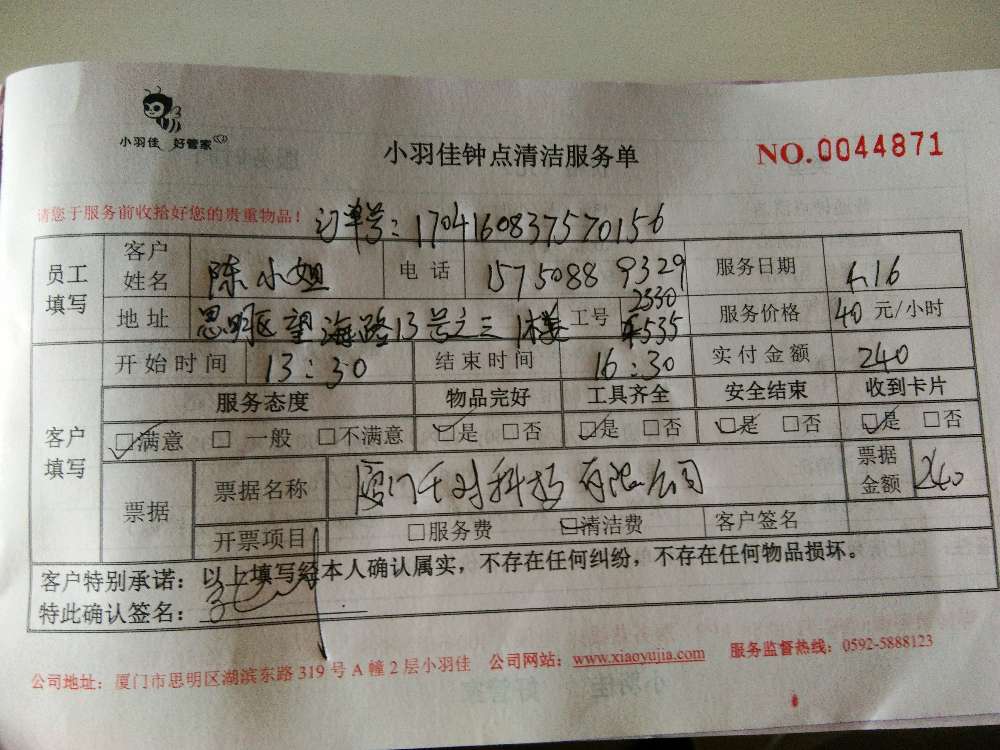 小羽佳 好管家
小羽佳钟点清洁服务单
NO.0044871
请您于服务前收拾好您的贵重物品!
订单号:1704160837570156
员工填写 客户姓名 陈小姐 电话 15750889329 服务日期 4.16
地址 思明区望海路13号之三1楼 工号 2330 服务价格 40 元/小时
客户填写 开始时间 13:30 结束时间 16:30 实付金额 240
服务态度 物品完好 工具齐全 安全结束 收到卡片
☑满意 □一般 □不满意 ☑是 □否 ☑是 □否 ☑是 □否 ☑是 □否
票据 票据名称 厦门千对科技有限公司 票据金额 240
开票项目 □服务费 ☑清洁费 客户签名
客户特别承诺:以上填写经本人确认属实,不存在任何纠纷,不存在任何物品损坏。
特此确认签名:
公司地址:厦门市思明区湖滨东路319号A幢2层小羽佳 公司网站:www.xiaoyujia.com 服务监督热线:0592-5888123